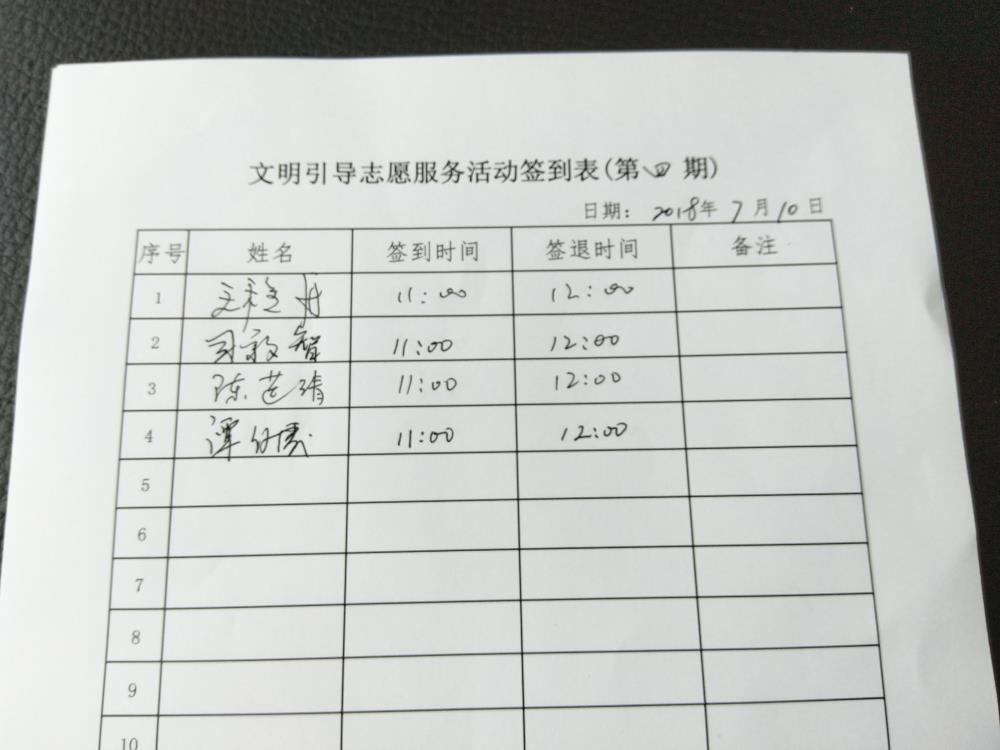 文明引导志愿服务活动签到表(第四期)
日期: 2018年7月10日
序号 姓名 签到时间 签退时间 备注
1 11:00 12:00
2 司敦智 11:00 12:00
3 陈莲清 11:00 12:00
4 谭 11:00 12:00
5
6
7
8
9
10